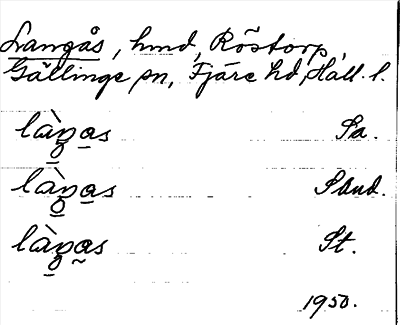 Långås, hmd, Röstorp,
Gällinge sn, Fjäre hd, Hall. l.
làŋa̲s Sa.
làŋa̲s Sand.
làŋa̰s St.
1950.